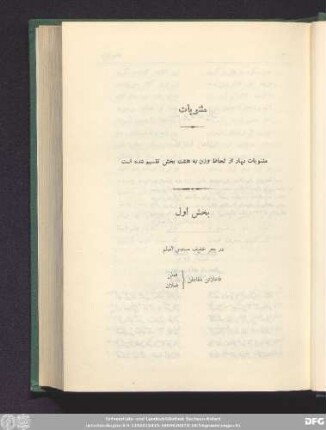 مثنویات
مثنویات بهار از لحاظ وزن به هشت بخش تقسیم شده است
بخش اول
در بحر خفیف مسدس اصلم
فاعلاتن مفاعلن { فعلن
فعلان
Universitäts- und Landesbibliothek Sachsen-Anhalt
DFG